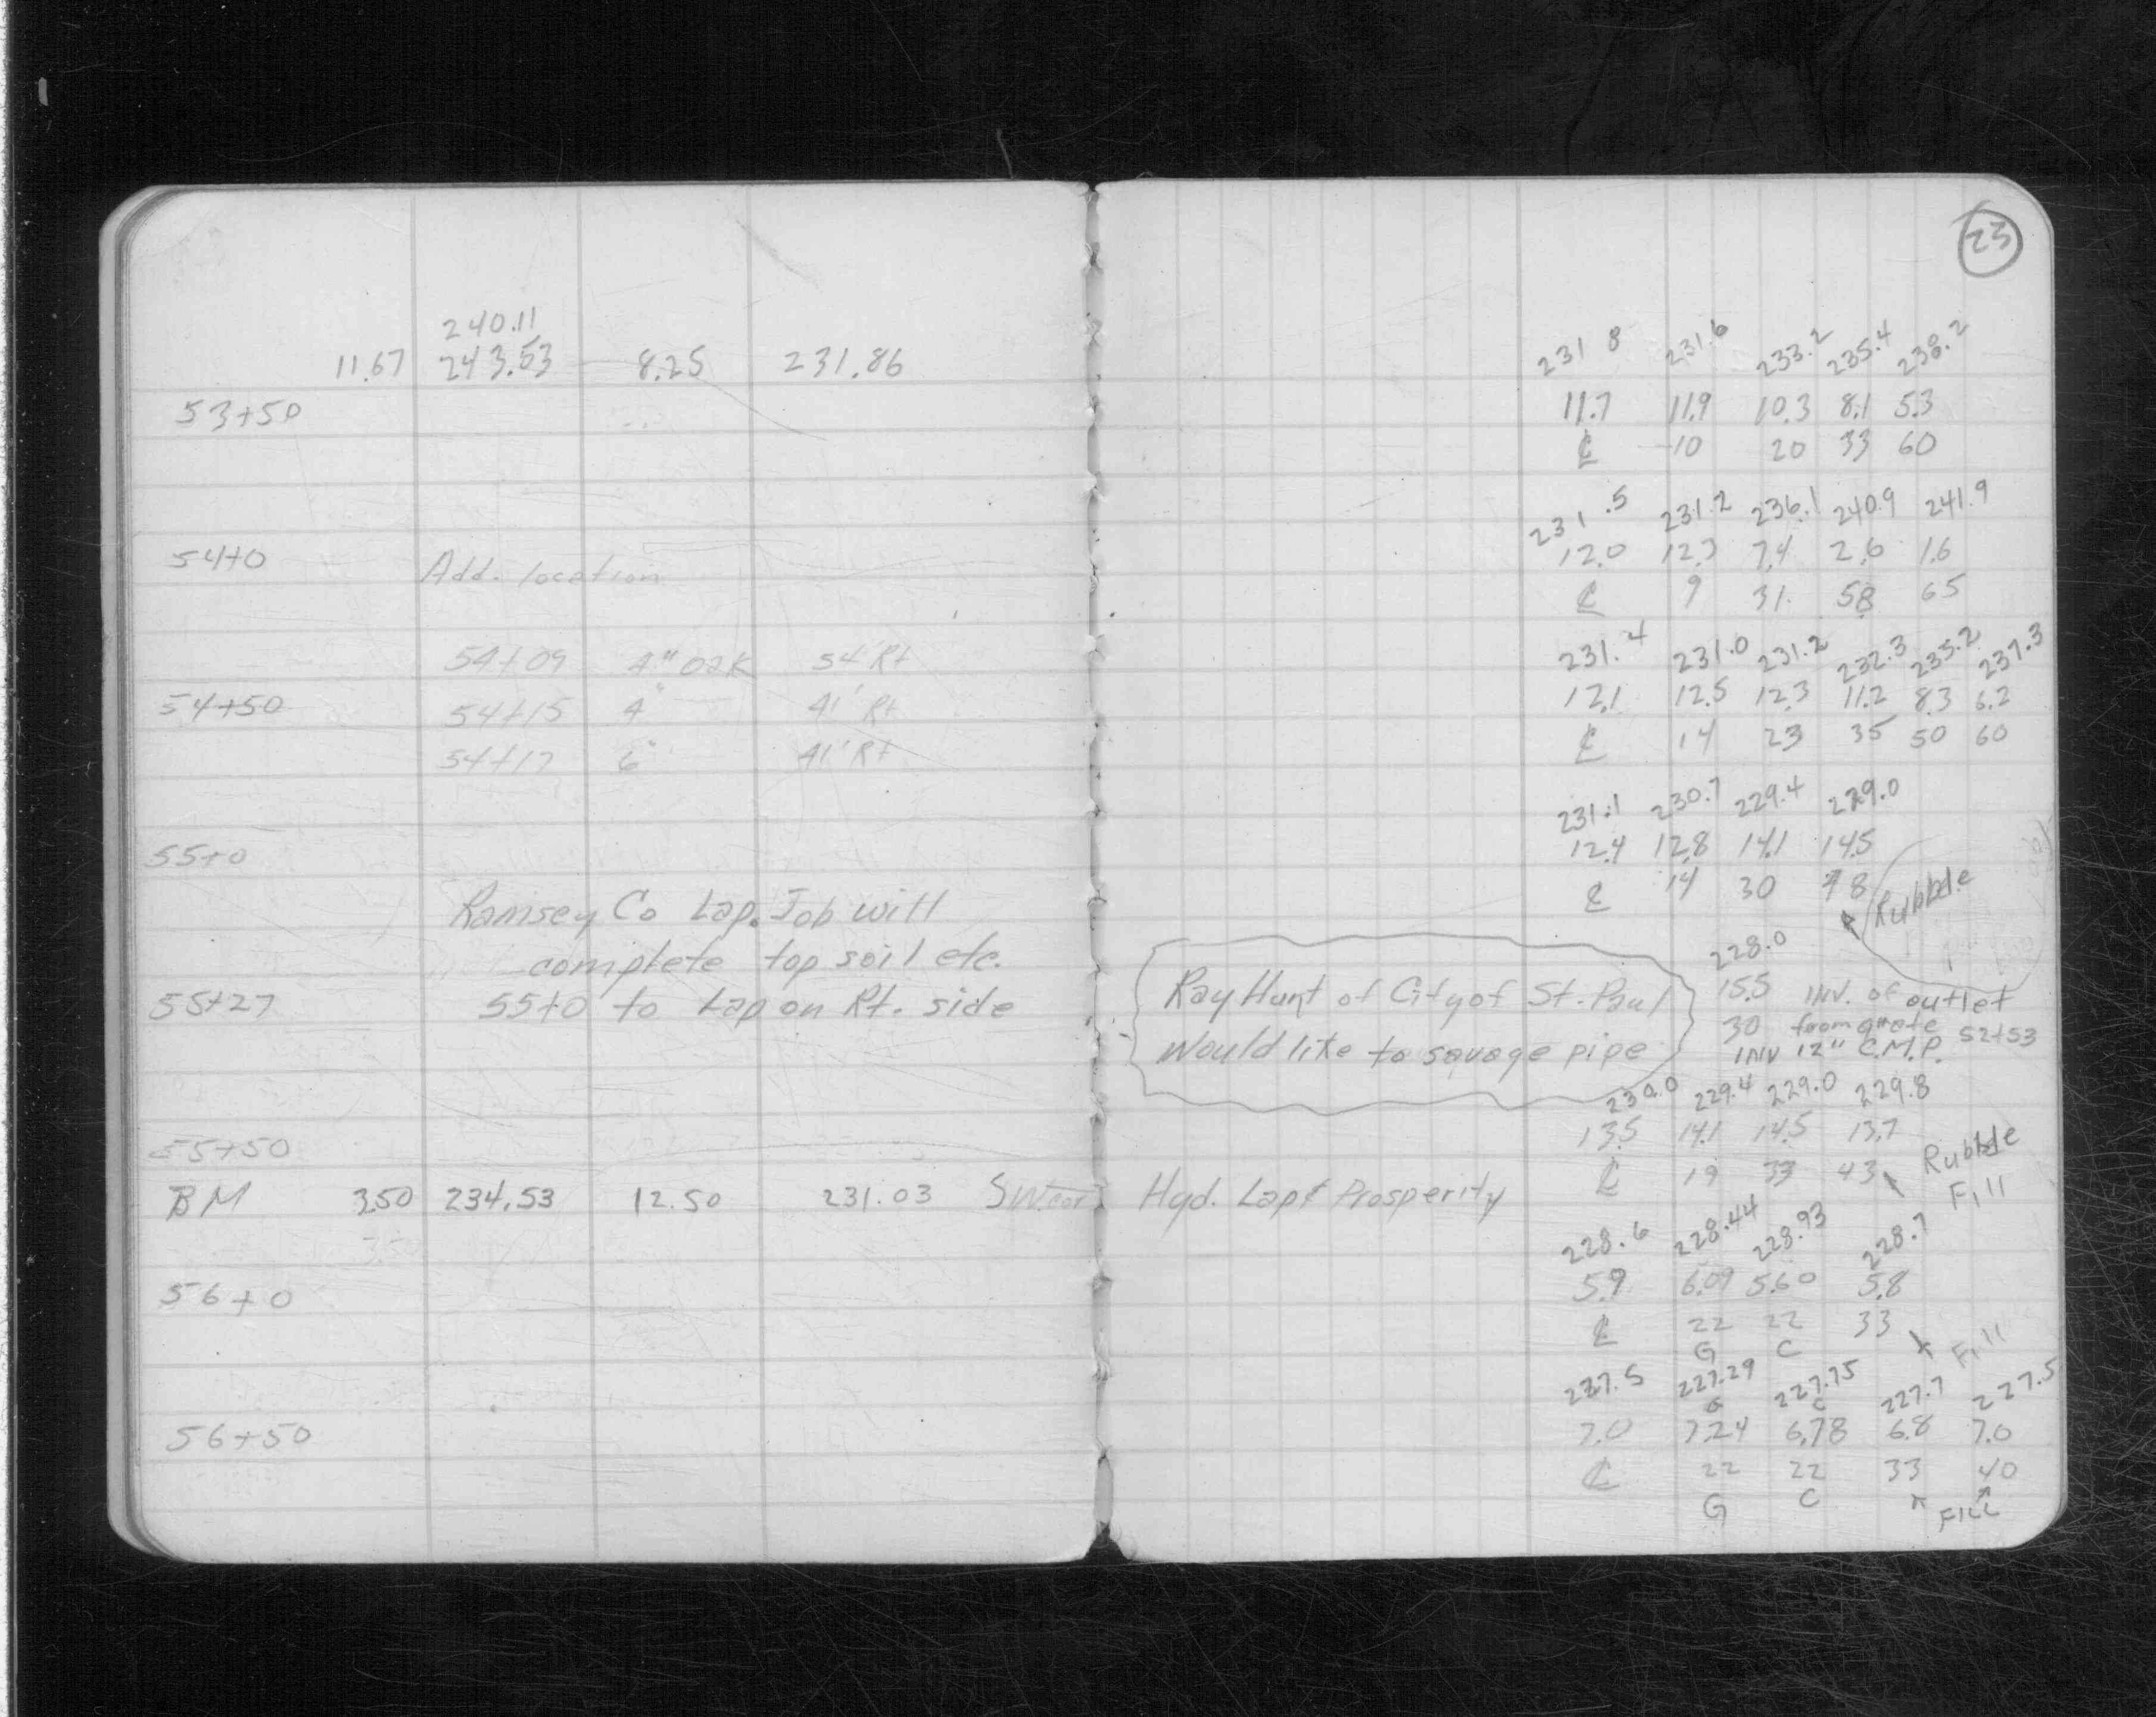 240.11
11.67 243.53 8.25 231.86
53+50
54+0
Add. location
54+09 4" Oak 54' Rt
54+50
54+15 4" 41' Rt
54+17 6" 41' Rt
55+0
Ramsey Co Lap. Job will
complete top soil etc.
55+27 55+0 to Lap on Rt. side
55+50
BM 3.50 234.53 12.50 231.03 SW.cor Hyd. Lap & Prosperity
56+0
56+50
23
231.8 231.6 233.2 235.4 238.2
11.7 11.9 10.3 8.1 5.3
℄ 10 20 33 60
231.5 231.2 236.1 240.9 241.9
12.0 12.3 7.4 2.6 1.6
℄ 9 31 58 65
231.4 231.0 231.2 232.3 235.2 237.3
12.1 12.5 12.3 11.2 8.3 6.2
℄ 14 23 35 50 60
231.1 230.7 229.4 229.0
12.4 12.8 14.1 14.5
℄ 14 30 48
Rubble
228.0
15.5 INV. of outlet
30 from 52+53
INV 12" C.M.P.
Ray Hunt of City of St. Paul
would like to savage pipe
230.0 229.4 229.0 229.8
13.5 14.1 14.5 13.7
℄ 19 33 43
Rubble
Fill
228.6 228.44 228.93 228.7
5.9 6.09 5.60 5.8
℄ 22 22 33
G C
Fill
227.5 227.29 227.75 227.7 227.5
G C
7.0 7.24 6.78 6.8 7.0
℄ 22 22 33 40
G C
FILL